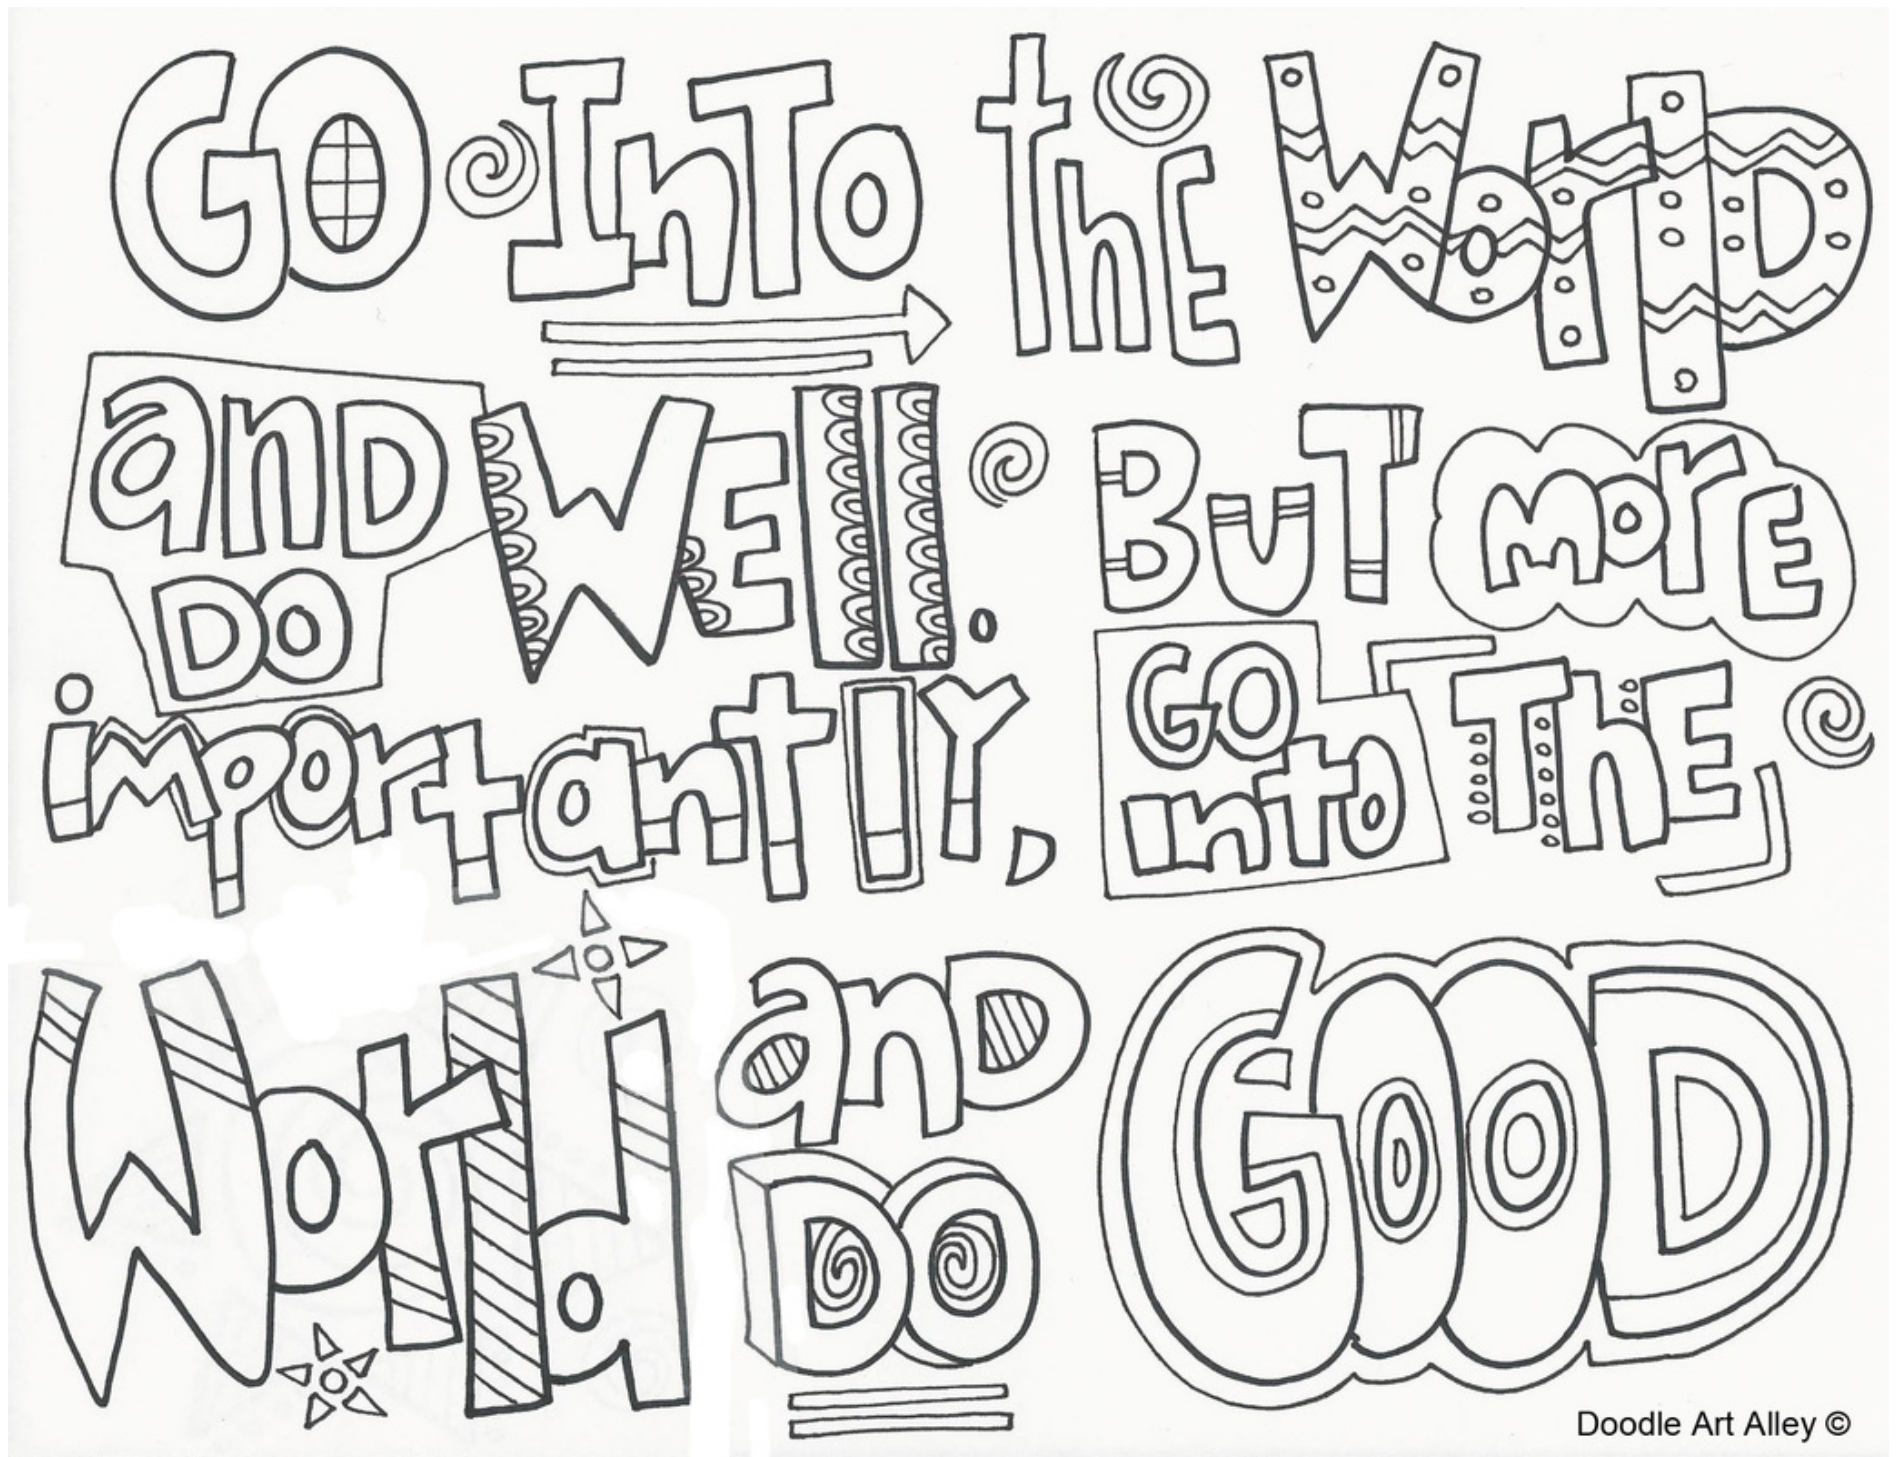 GO InTo thE WorlD
anD DO WEll. BuT morE
importantlY, GO into ThE
World anD DO GOOD
Doodle Art Alley ©